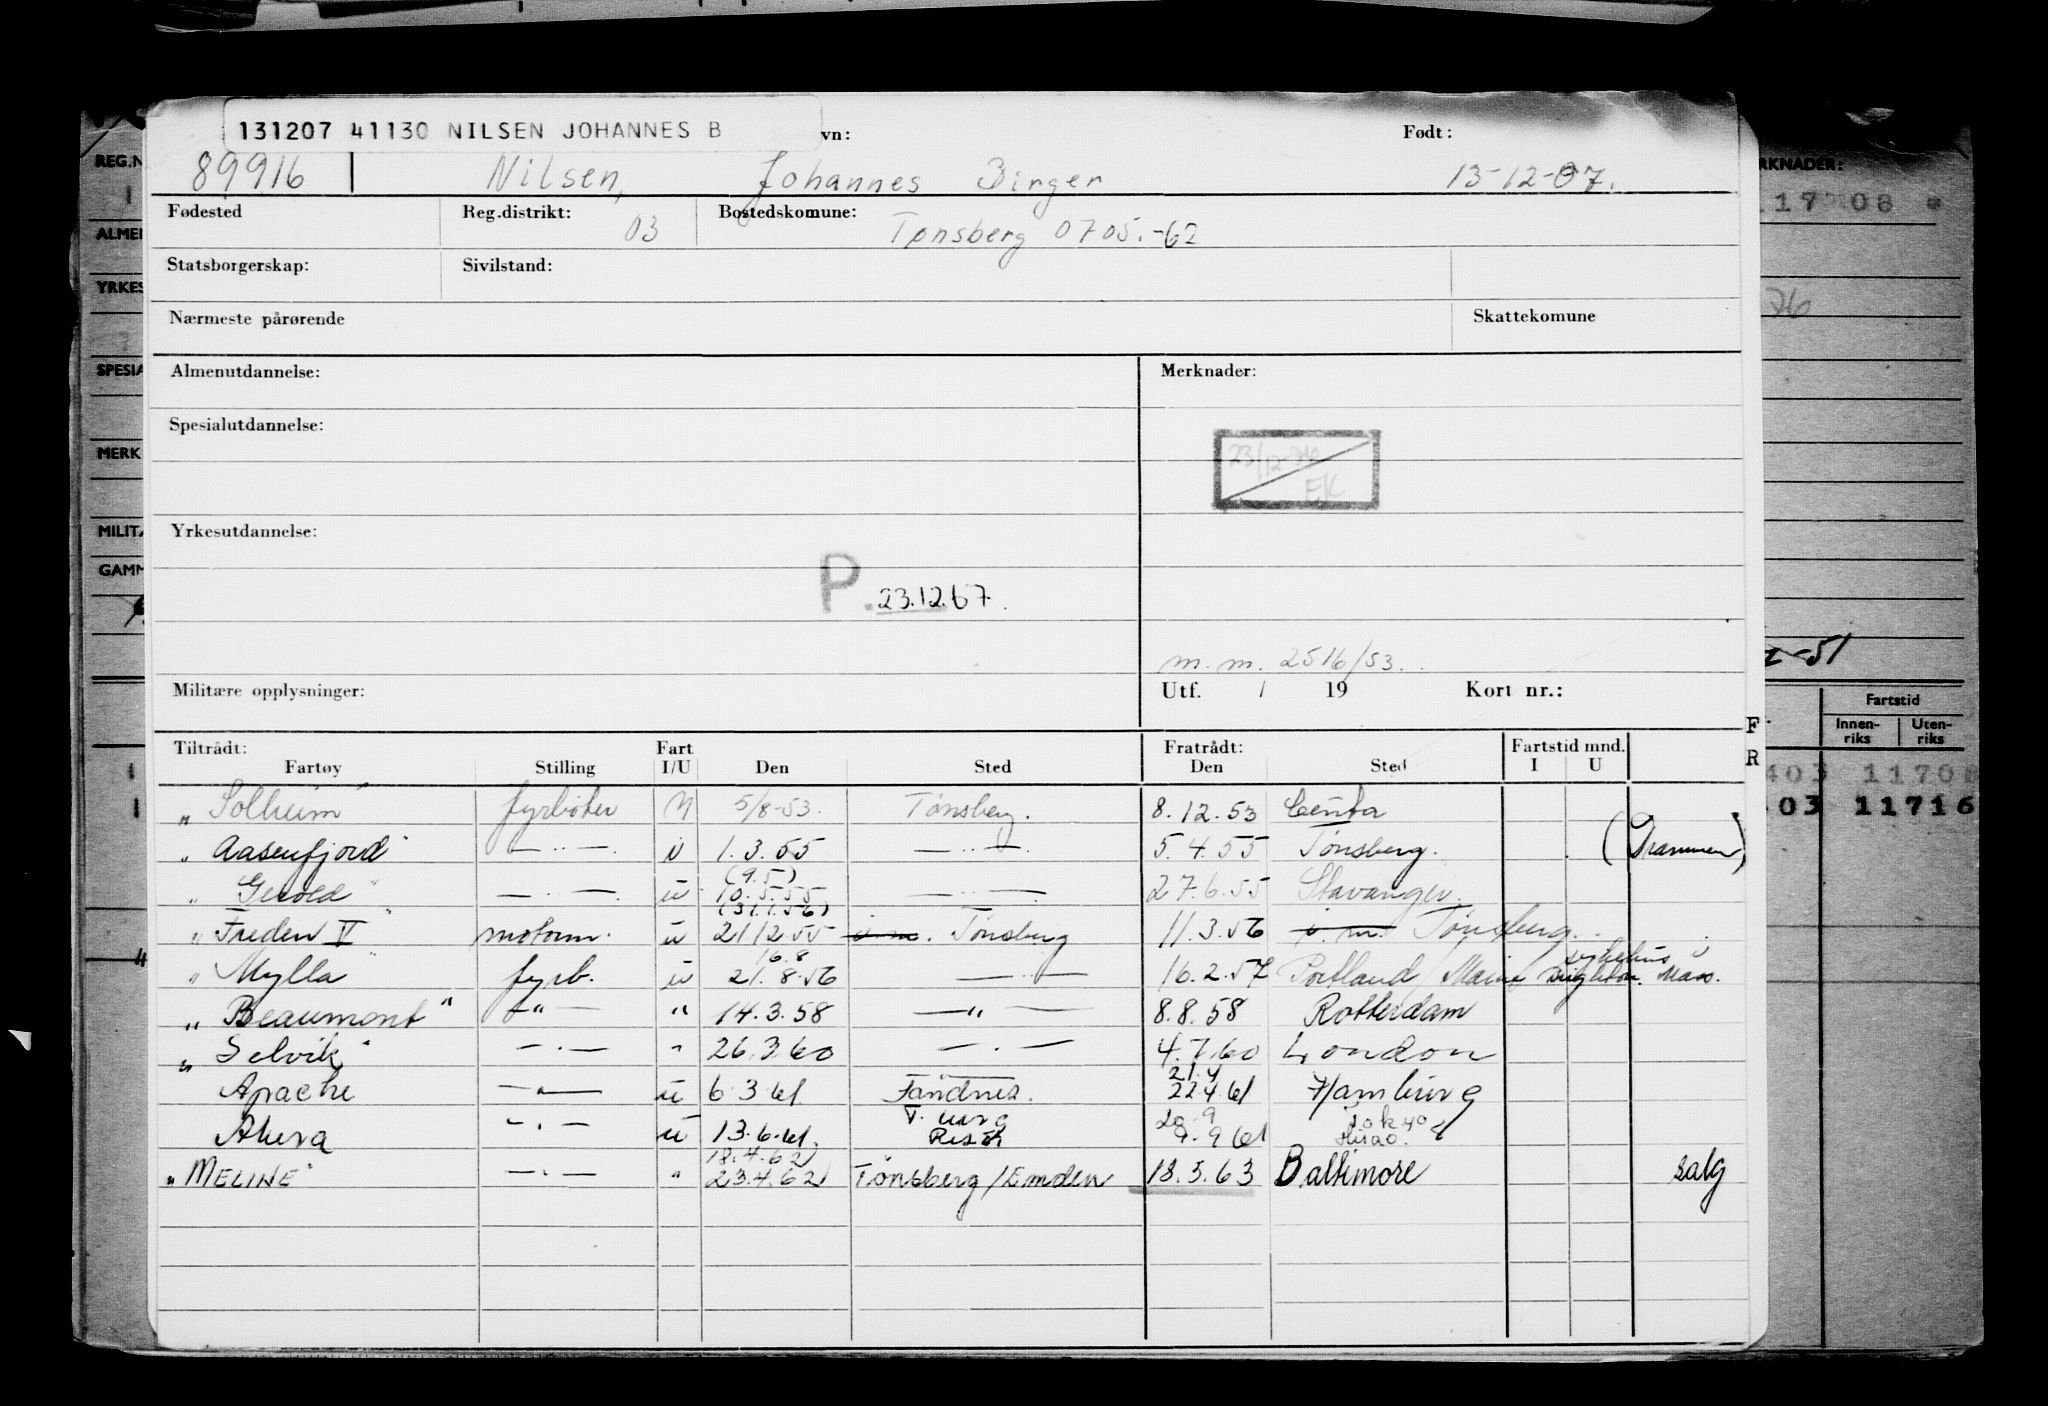 131207 41130 NILSEN JOHANNES B vn: Født:
89916 Nilsen, Johannes Birger 13-12-07.
Fødested Reg.distrikt: 03 Bostedskomune: Tønsberg 0705.-62
Statsborgerskap: Sivilstand:
Nærmeste pårørende Skattekomune
Almenutdannelse: Merknader:
Spesialutdannelse:
23/12-76 EK
Yrkesutdannelse:
P. 23.12.67.
m.m. 2516/53.
Militære opplysninger: Utf. / 19 Kort nr.:
Tiltrådt: Fart Fratrådt: Fartstid mnd.
Fartøy Stilling I/U Den Sted Den Sted I U
"Solheim" fyrbøter U 5/8-53. Tønsberg. 8.12.53 Ceuta
"Aasenfjord" — " — ü 1.3.55 — " — 5.4.55 Tønsberg. (Drammen)
(9.5)
"Gerold" — " — ü 10.5.55 — " — 27.6.55 Stavanger.
(31.1.56)
"Freden V" motorm. ü 21.12.55 u.m. Tønsberg 11.3.56 u.m. Tønsberg.
16.8 sykehus
"Mylla" fyrb. ü 21.8.56 — " — 16.2.57 Portland / Maine Mass.
"Beaumont" — " — " 14.3.58 — " — 8.8.58 Rotterdam
"Selvik" — " — " 26.3.60 — " — 4.7.60 London
21.4
Apache — " — ü 6.3.61 22.4.61 Hamburg
20.9 Tokyo
— " — ü 13.6.61. 9.9.61
18.4.62
"MELINE" — " — " 23.4.62 Tønsberg/Emden 18.5.63 Baltimore salg
REG.N
ALMEN
YRKES
SPESIA
MERK
MILITÆ
GAMM
RKNADER:
11708 *
76
-51
F R
Fartstid
Innen-riks Uten-riks
403 11708
403 11716